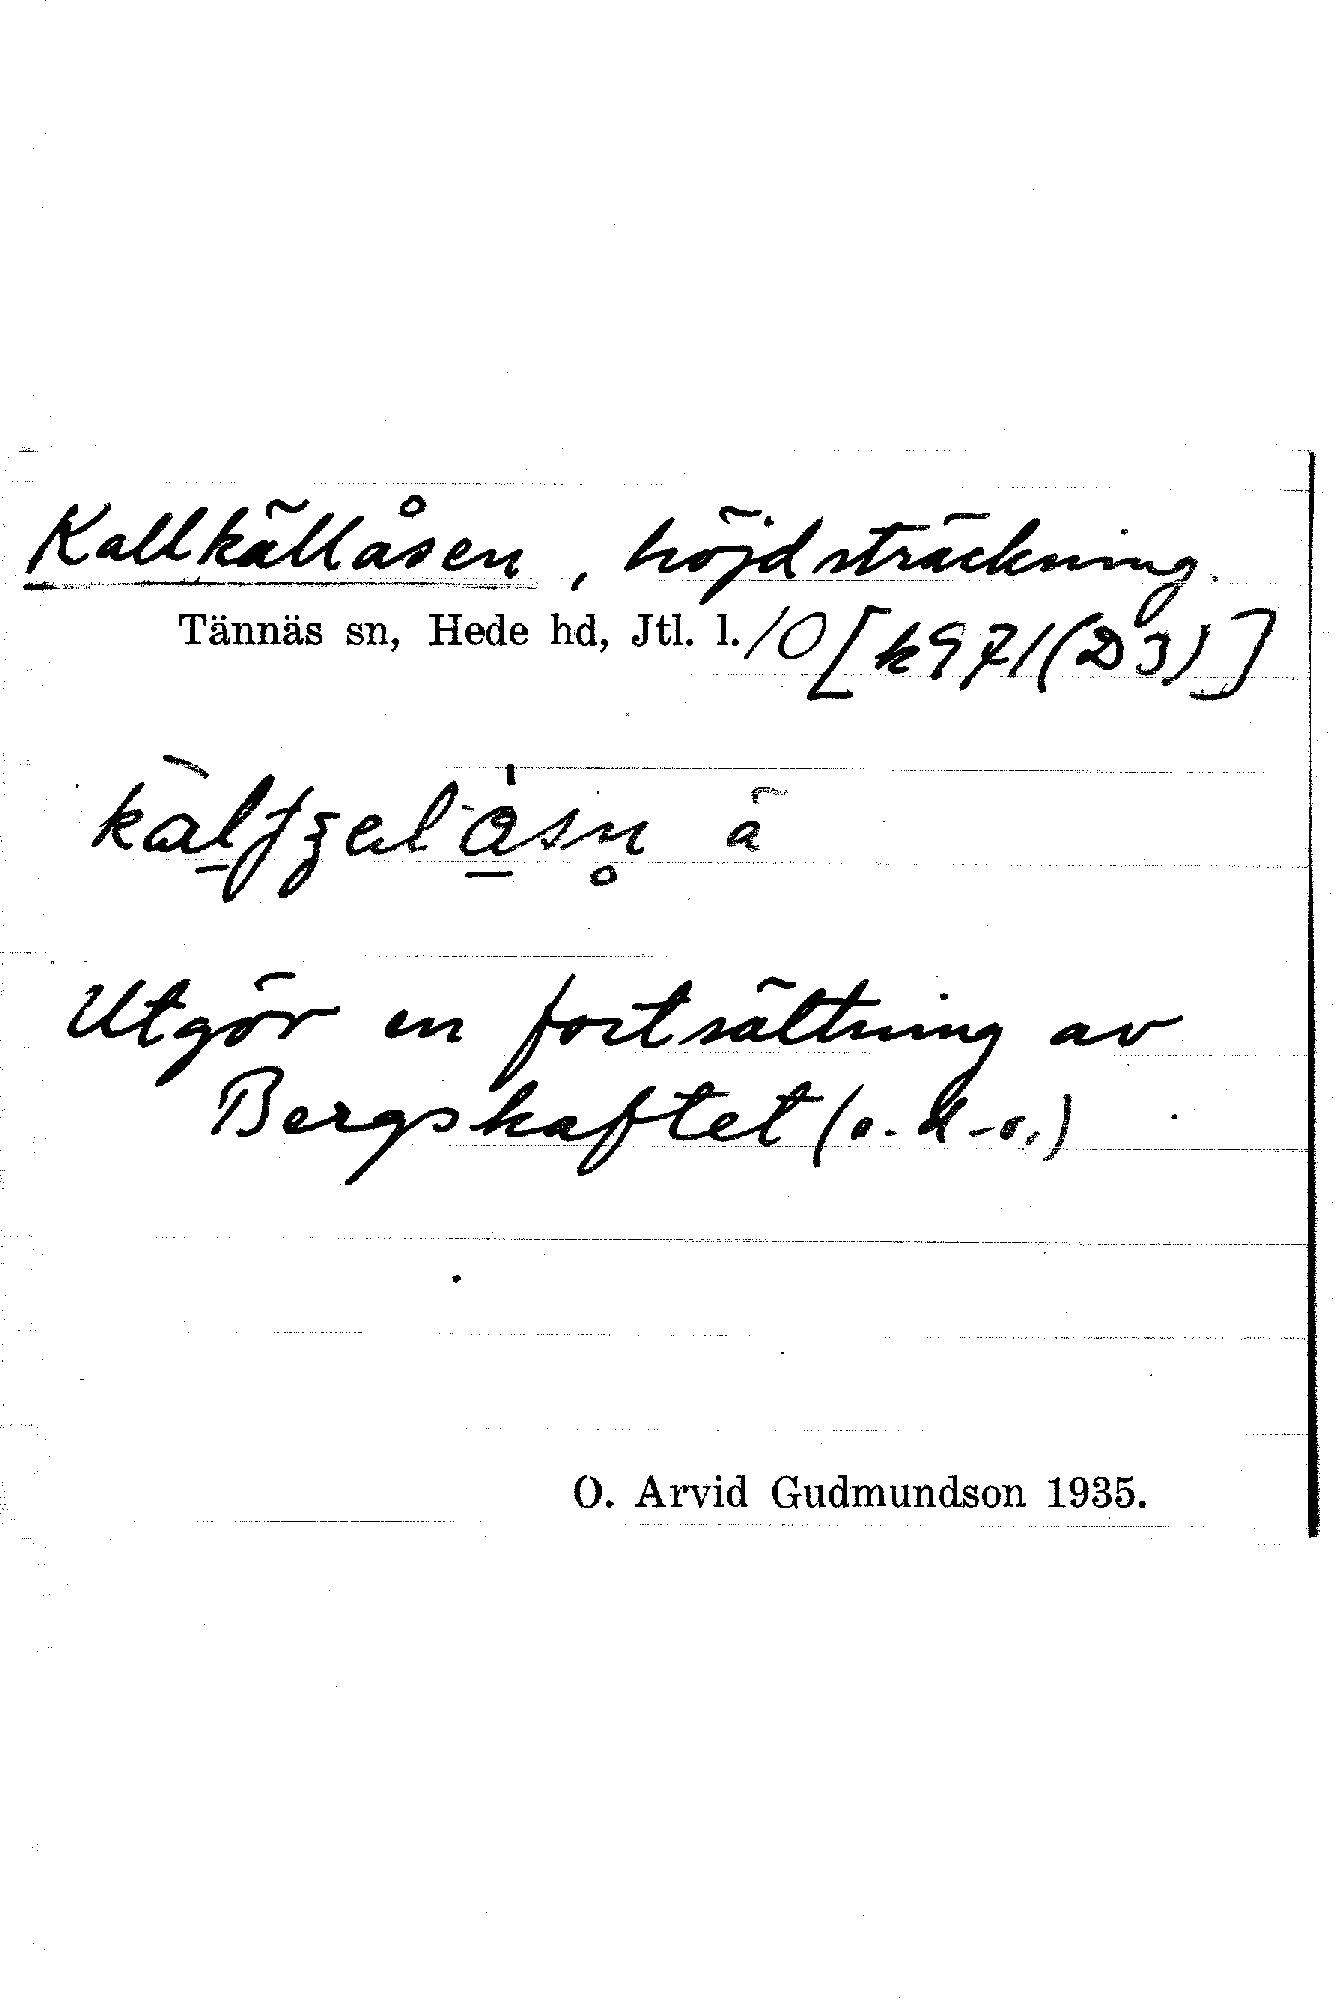 Kallkällåsen, höjdsträckning.
Tännäs sn, Hede hd, Jtl. l./O [k971(D3)]
ä
Utgör en fortsättning av
Bergskaftet (o.d.o.)
O. Arvid Gudmundson 1935.